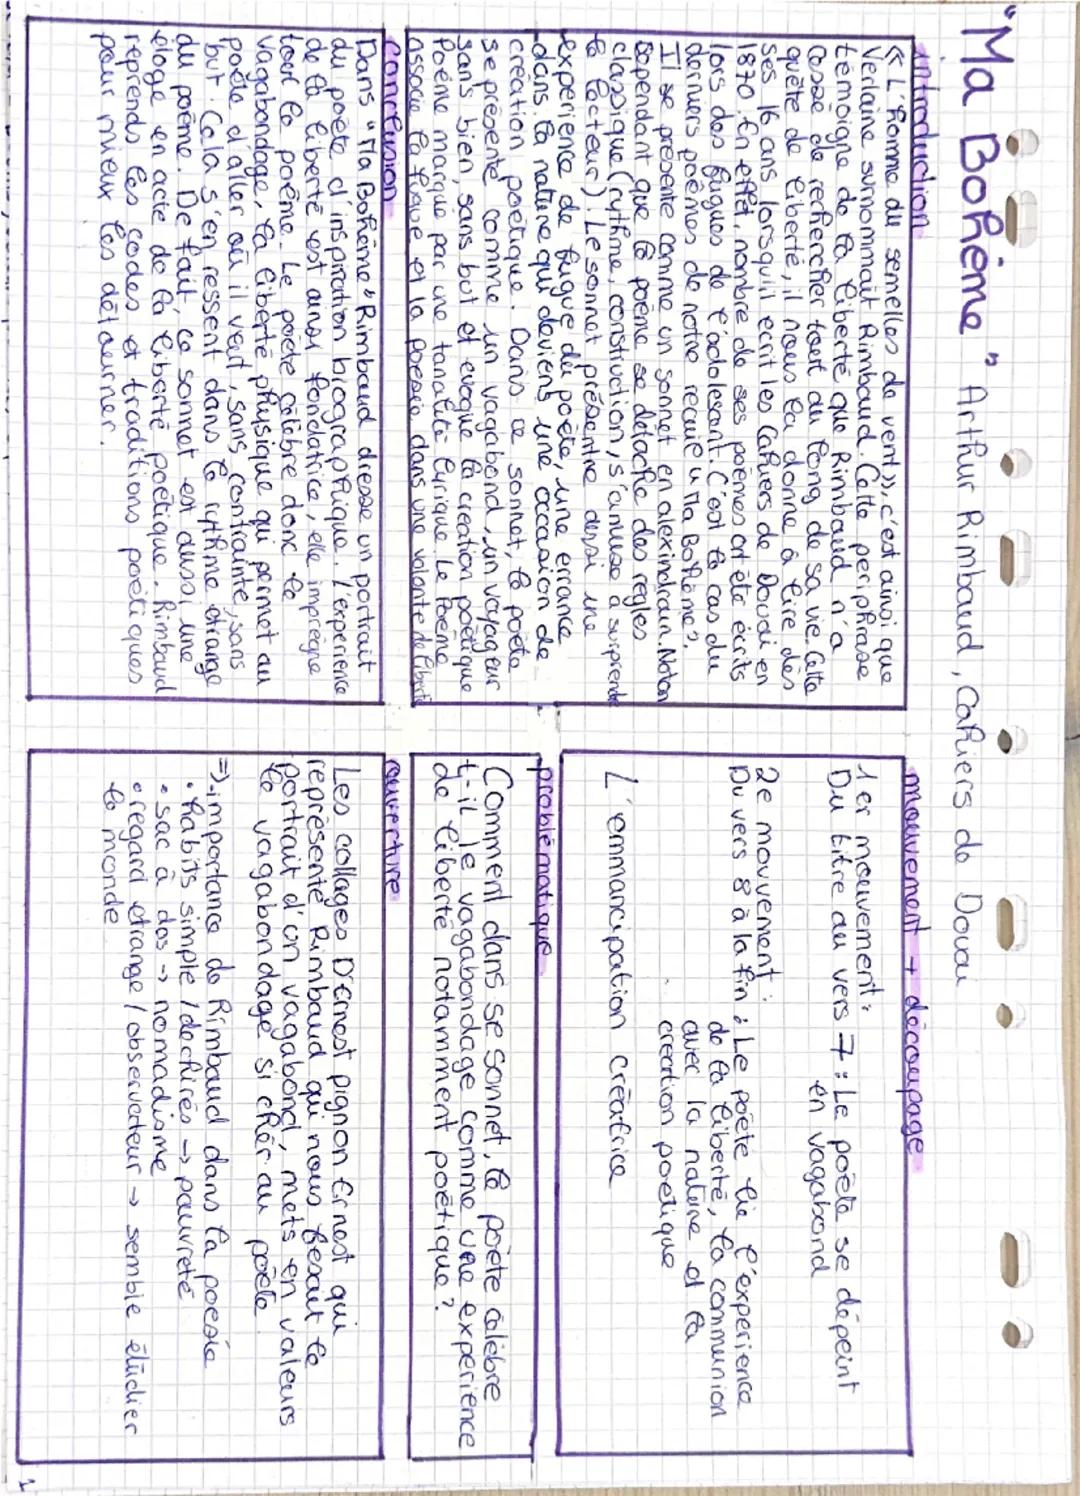 "Ma Bohême" Arthur Rimbaud, Cahiers de Douai
introduction
« L'homme du semelles de vent», c'est ainsi que
Verlaine surnommait Rimbaud. Cette periphrase
témoigne de la liberté que Rimbaud n'a
cesse de rechercher tout au long de sa vie. Cette
quête de liberté, il nous la donne à lire dès
ses 16 ans lorsqu'il ecrit les Cahiers de Douai en
1870. En effet, nombre de ses poèmes ont été écrits
lors des fugues de l'adolescent. C'est le cas du
derniers poèmes de notre recueil "Ma Bohême".
Il se présente comme un sonnet en alexindrain. Noton
cependant que le poème se détache des regles
classique (rythme, constuction, s'amuse a surprendre
le lecteur). Le sonnet présentre ainsi une
experience de fugue du poète, une errance
dans la nature qui deviens une occasion de
création poétique. Dans ce sonnet, le poète
se présente comme un vagabond, un voyageur
sans bien, sans but et evoque la creation poétique
Poème marque par une tonalité lyrique. Le Poème
associe la fugue et la poesie dans une volonte de liberté
conclusion
Dans "Ma Bohême" Rimbaud dresse un portrait
du poète d'inspiration biographique. L'experience
de la liberté est ainsi fondatrice, elle imprègne
tout le poème. Le poète célèbre donc le
vagabondage, la liberté physique qui permet au
poète d'aller où il veut, sans contrainte, sans
but. Cela s'en ressent dans le rythme étrange
du poème. De fait, ce sonnet est aussi une
éloge en acte de la liberté poétique. Rimbaud
reprends les codes et traditions poétiques
pour mieux les détourner.
mouvement + découpage
1er mouvement:
Du titre au vers 7 : Le poète se dépeint
en vagabond
2e mouvement :
Du vers 8 à la fin : Le poète lie l'experience
de la liberté, la communion
avec la nature et la
creation poetique
L'emmancipation créatrice
problématique
Comment dans se sonnet, le poète célèbre
t-il le vagabondage comme une experience
de liberté notamment poétique?
ouverture
Les collages D'Ernest pignon Ernest qui
représente Rimbaud qui nous fesait le
portrait d'un vagabond, mets en valeurs
le vagabondage si chèr au poète
=> importance de Rimbaud dans la poesie
• habits simple / dechirés → pauvreté
• sac à dos → nomadisme
• regard etrange / observateur → semble étudier
le monde
1